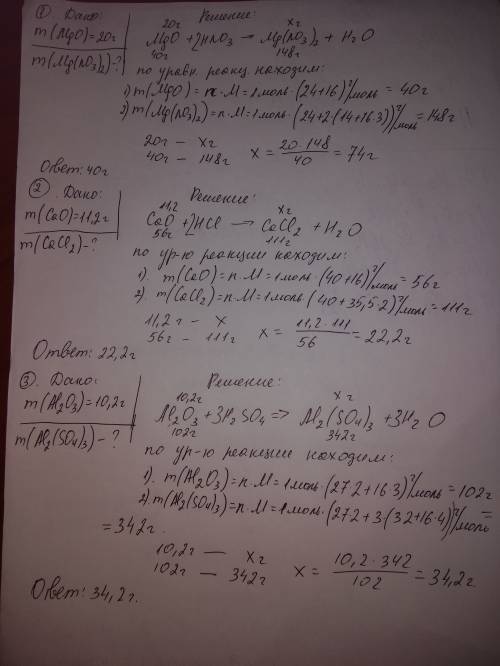 ① Дано:
m(MgO)=20г
m(Mg(NO3)2)-?
Решение:
20г xг
MgO + 2HNO3 → Mg(NO3)2 + H2O
40г 148г
по уравн. реакц. находим:
1) m(MgO) = n·M = 1моль·(24+16)г/моль = 40г
2) m(Mg(NO3)2) = n·M = 1моль·(24+2(14+16·3))г/моль = 148г
20г – xг
40г – 148г x = 20·148/40 = 74г
Ответ: 40г
② Дано:
m(CaO)=11,2г
m(CaCl2)-?
Решение:
11,2 xг
CaO + 2HCl → CaCl2 + H2O
56г 111г
по ур-ю реакции находим:
1). m(CaO) = n·M = 1моль·(40+16)г/моль = 56г
2). m(CaCl2) = n·M = 1моль·(40+35,5·2)г/моль = 111г
11,2г – x
56г – 111г x = 11,2·111/56 = 22,2г
Ответ: 22,2г
③ Дано:
m(Al2O3)=10,2г
m(Al2(SO4)3) - ?
Решение:
10,2г xг
Al2O3 + 3H2SO4 => Al2(SO4)3 + 3H2O
102г 342г
по ур-ю реакции находим:
1). m(Al2O3) = n·M = 1моль·(27·2+16·3)г/моль = 102г
2). m(Al2(SO4)3) = n·M = 1моль·(27·2+3·(32+16·4))г/моль =
= 342г.
10,2г — xг
102г — 342г x = 10,2·342/102 = 34,2г
Ответ: 34,2г.